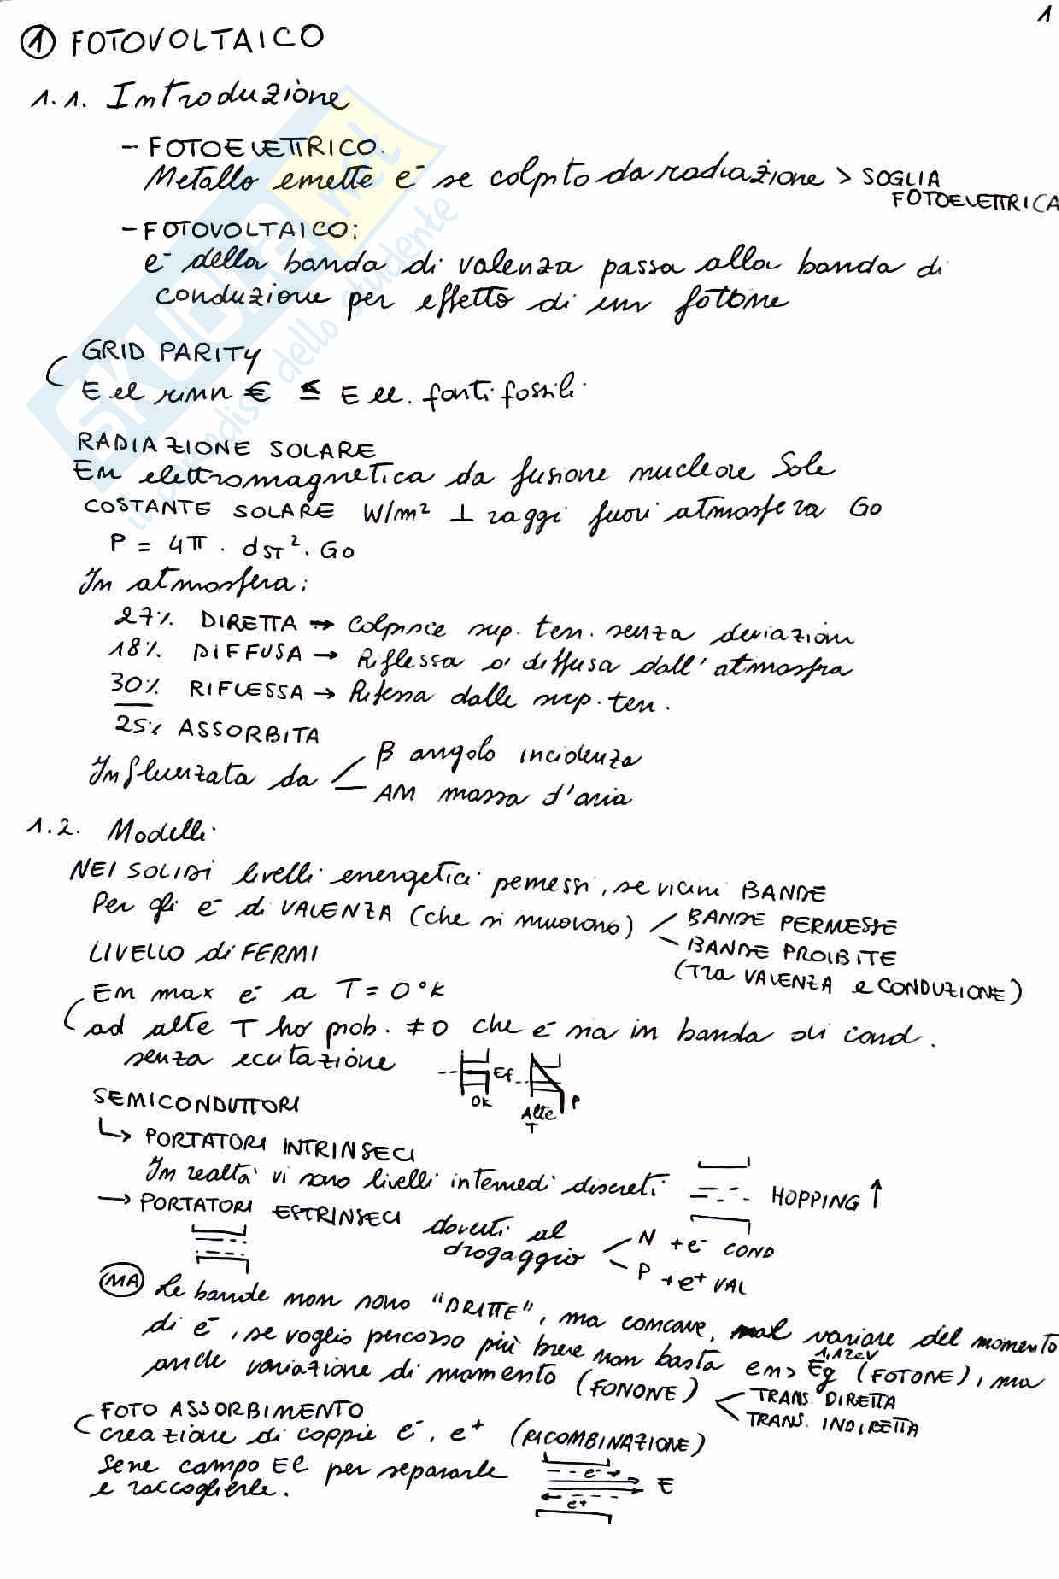 1
① FOTOVOLTAICO
1.1. Introduzione
- FOTOELETTRICO.
Metallo emette e⁻ se colpito da radiazione > SOGLIA
FOTOELETTRICA
- FOTOVOLTAICO:
e⁻ della banda di valenza passa alla banda di
conduzione per effetto di un fotone
GRID PARITY
E el rinn € ≤ E el. fonti fossili
RADIAZIONE SOLARE
En elettromagnetica da fusione nucleare Sole
COSTANTE SOLARE W/m² ⊥ raggi fuori atmosfera Go
P = 4π · dST² · Go
In atmosfera:
27% DIRETTA → Colpisce sup. terr. senza deviazioni
18% DIFFUSA → Riflessa o diffusa dall'atmosfra
30% RIFLESSA → Rifessa dalle sup. terr.
25% ASSORBITA
Influenzata da β angolo incidenza
AM massa d'aria
1.2. Modelli
NEI SOLIDI livelli energetici pemessi, se vicini BANDE
Per gli e⁻ di VALENZA (che si muovono) BANDE PERMESSE
BANDE PROIBITE
(tra VALENZA e CONDUZIONE)
LIVELLO di FERMI
En max e⁻ a T = 0°K
ad alte T ho prob. ≠ 0 che e⁻ sia in banda di cond.
senza eccitazione
Ef
0K Alte P
T
SEMICONDUTTORI
↳ PORTATORI INTRINSECI
In realtà vi sono livelli intermedi discreti HOPPING ↑
→ PORTATORI ESTRINSECI dovuti al
drogaggio N +e⁻ COND
P +e⁺ VAL
MA le bande non sono "DRITTE", ma concave, al variare del momento
di e⁻, se voglio percorso più breve non basta en > Eg (FOTONE), ma
1,12eV
anche variazione di momento (FONONE) TRANS. DIRETTA
TRANS. INDIRETTA
FOTO ASSORBIMENTO
creazione di coppie e⁻, e⁺ (RICOMBINAZIONE)
Serve campo El per separarle
e raccoglierle.
e⁻ → E
← e⁺
SKUOLA.net
il paradiso dello studente